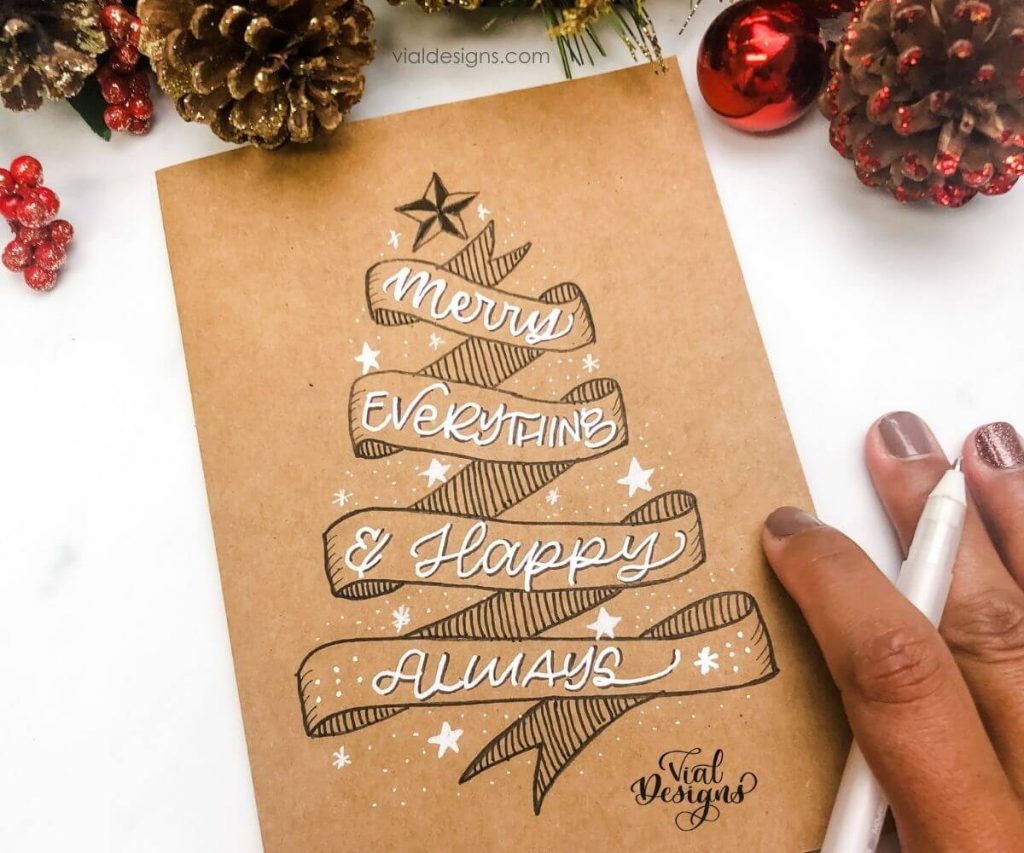 vialdesigns.com
Merry
EVERYTHING
& Happy
ALWAYS
Vial
Designs